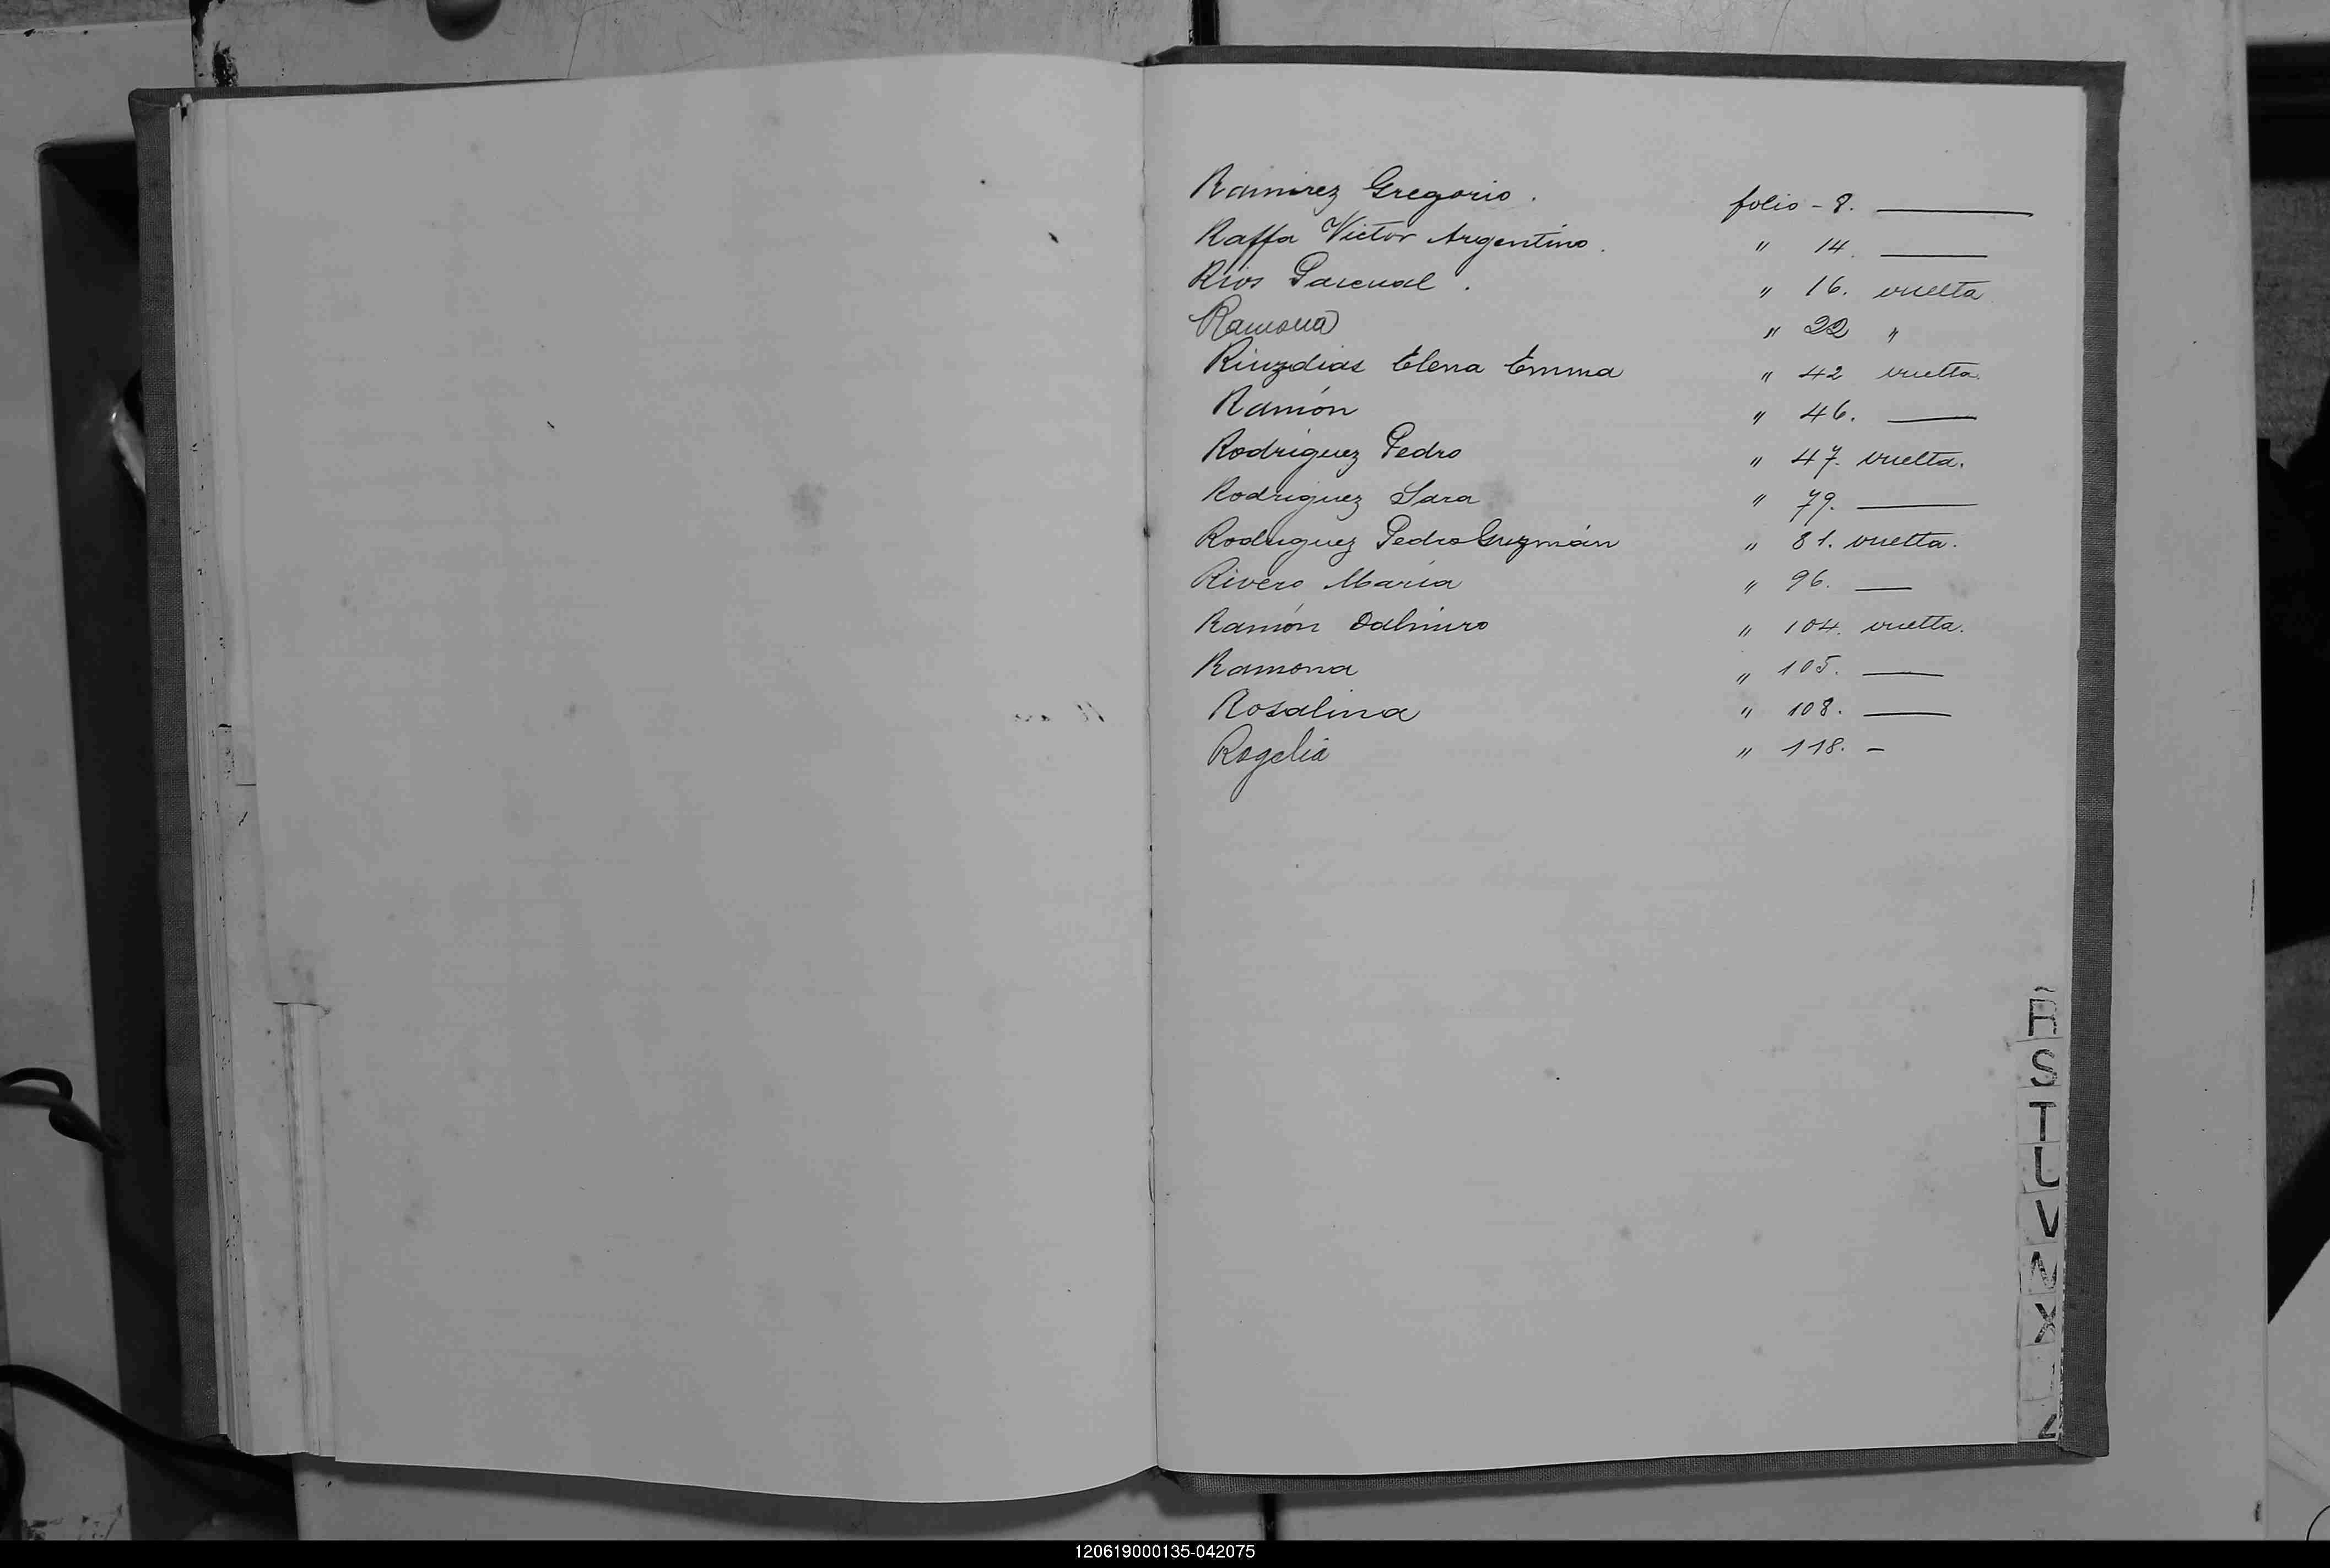 Ramirez Gregorio. folio - 8. ———
Raffa Victor Argentino. " 14. ———
Rios Pascual. " 16. vuelta
Ramona " 22 "
Elena Emma " 42 vuelta.
Ramón " 46. ———
Rodriguez Pedro " 47. vuelta.
Rodriguez Sara " 79. ———
Rodriguez Pedro Guzmán " 81. vuelta.
Rivero María " 96. —
Ramón Dalmiro " 104. vuelta.
Ramona " 105. ———
Rosalina " 108. ———
Rogelia " 118. -
R
S
T
U
V
X
Z
120619000135-042075